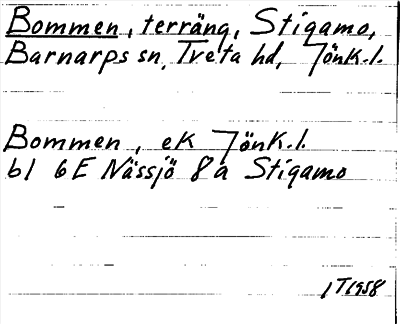 Bommen, terräng, Stigamo,
Barnarps sn, Tveta hd, Jönk.l.
Bommen, ek Jönk.l.
bl 6E Nässjö 8a Stigamo
1958